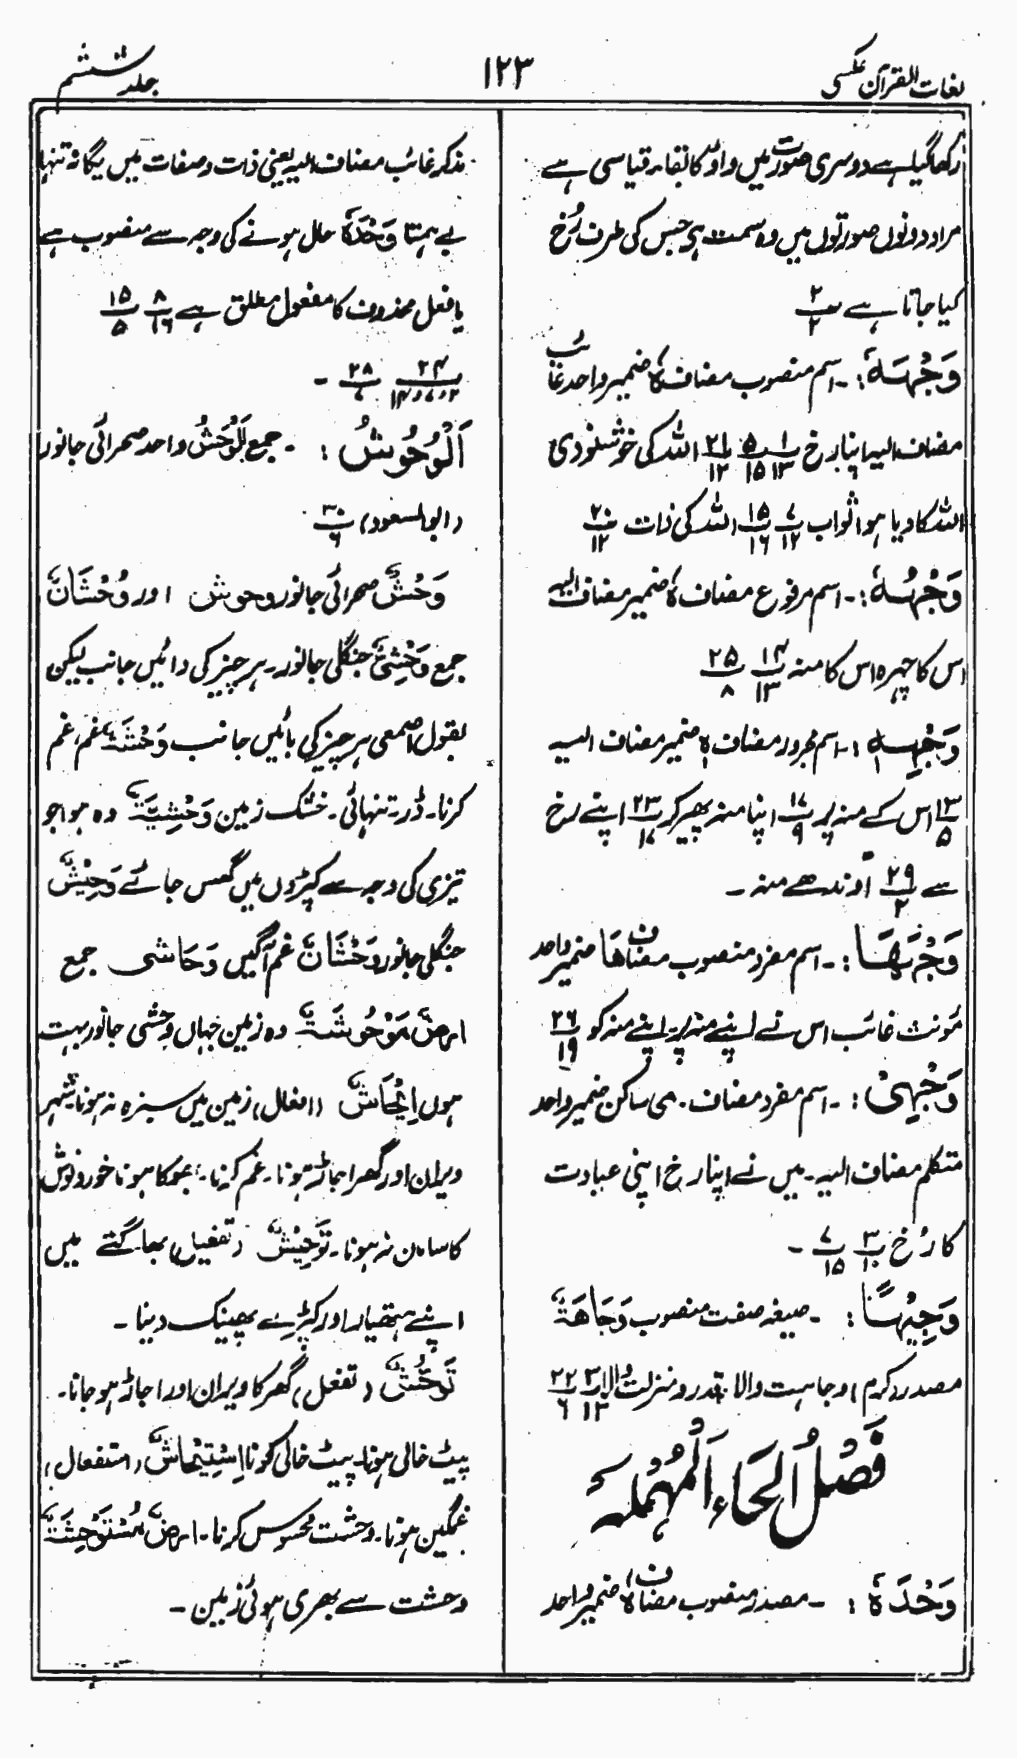 لغات القرآن عکسی
۱۲۳
جلد ششم
رکھا گیا ہے دوسری صورت میں واؤ کا بقاء قیاسی ہے
مراد دونوں صورتوں میں وہ سمت ہی جس کی طرف رُخ
کیا جاتا ہے ۲/۲
وَجْهَهٗ :۔ اسم منصوب مضاف ہٗ ضمیر واحد غائب
مضاف الیہ اپنا رخ ۱/۱۳ ۵/۱۵ ۲۱/۱۲ اللہ کی خوشنودی
اللہ کا دیا ہوا ثواب ۷/۱۲ ۱۵/۱۶ اللہ کی ذات ۲۰/۱۲
وَجْهُهٗ :۔ اسم مرفوع مضاف ہٗ ضمیر مضاف الیہ
اس کا چہرہ اس کا منہ ۱۴/۱۳ ۲۵/۸
وَجْهِهٖ :۔ اسم مجرور مضاف ہٖ ضمیر مضاف الیہ
۱۳/۵ اس کے منہ پر ۱۷/۹ اپنا منہ پھیر کر ۲۳/۱۷ اپنے رخ
سے ۲۹/۲ اوندھے منہ ۔
وَجْهَهَا :۔ اسم مفرد منصوب مضاف هَا ضمیر واحد
مونث غائب اس نے اپنے منہ پر اپنے منہ کو ۲۶/۱۹
وَجْهِیَ :۔ اسم مفرد مضاف ۔ می ساکن ضمیر واحد
متکلم مضاف الیہ ۔ میں نے اپنا رخ اپنی عبادت
کا رُخ ۳/۱۰ ۷/۱۵ ۔
وَجِیْهًا :۔ صیغہ صفت منصوب وَجَاهَةٌ
مصدر (کرم) وجاہت والا قدر و منزلت والا ۳/۱۳ ۲۲/۶
فَصْلُ الحَاءِ اَلْمُهْمَلَہ
وَحْدَهٗ :۔ مصدر منصوب مضاف ہٗ ضمیر واحد
مذکر غائب مضاف الیہ یعنی ذات و صفات میں یگانہ تنہا
بے ہمتا وَحْدَهٗ حال ہونے کی وجہ سے منصوب ہے
یا فعل محذوف کا مفعول مطلق ہے ۸/۱۶ ۱۵/۵
۲۴/۲،۷،۱۴ ۲۸/۷ ۔
اَلْوُحُوْشُ :۔ جمع اَلْوَحْشُ واحد صحرائی جانور
(ابو السعود) ۳۰/۶
وَحْشٌ صحرائی جانور وحوش اور وُحْشَانٌ
جمع وَحْشِیٌّ جنگلی جانور ۔ ہر چیز کی دائیں جانب لیکن
بقول اصمعی ہر چیز کی بائیں جانب وَحْشَةٌ غم، غم
کرنا ۔ ڈر ۔ تنہائی ۔ خشک زمین وَحْشِیَّةٌ وہ ہوا جو
تیزی کی وجہ سے کپڑوں میں گھس جائے وَحِیْشٌ
جنگلی جانور وَحْشَانٌ غم آگیں وَحَاشی جمع
ارضٌ مَوْحُوْشَةٌ وہ زمین جہاں وحشی جانور بہت
ہوں اِیْحَاشٌ (افعال) زمین میں سبزہ نہ ہونا شہر
ویران اور گھر اجاڑ ہونا ۔ غم کرنا ۔ بھوکا ہونا خورونوش
کا سامان نہ ہونا ۔ تَوْحِیْشٌ (تفعیل) بھاگتے میں
اپنے ہتھیار اور کپڑے پھینک دینا ۔
تَوَحُّشٌ (تفعل) گھر کا ویران اور اجاڑ ہو جانا ۔
پیٹ خالی ہونا ۔ پیٹ خالی کرنا اِسْتِیْحَاشٌ (استفعال)
غمگین ہونا ۔ وحشت محسوس کرنا ۔ ارضٌ مُسْتَوْحِشَةٌ
وحشت سے بھری ہوئی زمین ۔